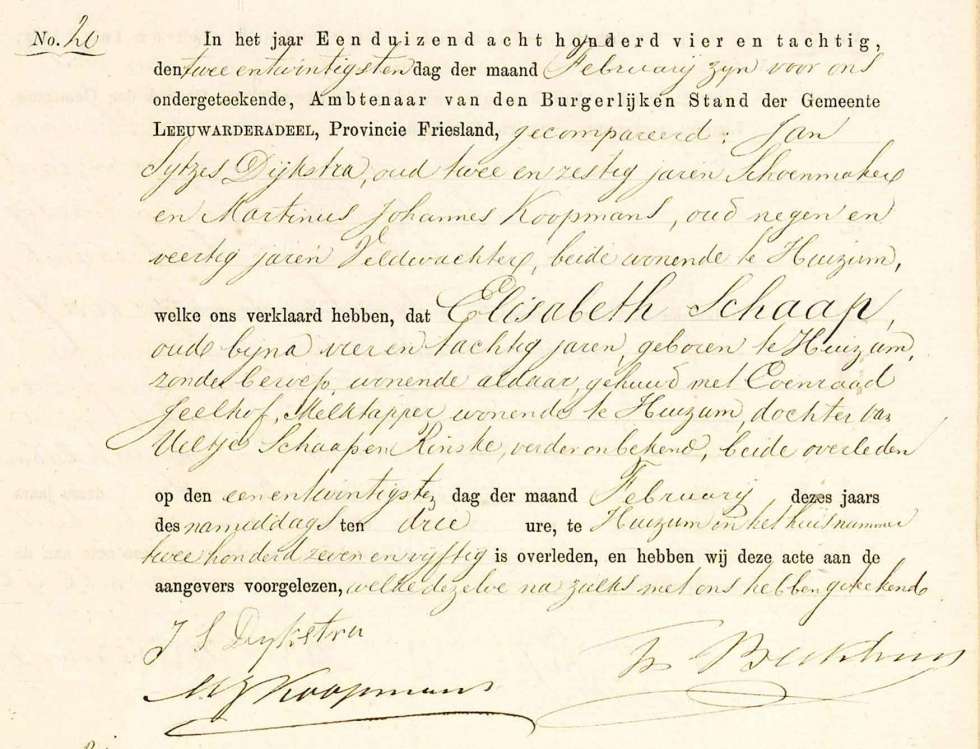 No. 20 In het jaar Een duizend acht honderd vier en tachtig,
den twee entwintigsten dag der maand Februarij zyn voor ons
ondergeteekende, Ambtenaar van den Burgerlijken Stand der Gemeente
LEEUWARDERADEEL, Provincie Friesland, gecompareerd: Jan
Sytzes Dijkstra, oud twee en zestig jaren Schoenmaker
en Martinus Johannes Koopmans, oud negen en
veertig jaren Veldwachter, beide wonende te Huizum,
welke ons verklaard hebben, dat Elisabeth Schaap,
oud byna vier en tachtig jaren, geboren te Huizum,
zonder beroep, wonende aldaar, gehuwd met Coenraad
Jeelhof, Melktapper wonende te Huizum, dochter van
Ueltje Schaap en Rinske, verder onbekend, beide overleden
op den een entwintigsten dag der maand Februarij dezes jaars
des namiddags ten drie ure, te Huizum in het huis nummer
twee honderd zeven en vyftig is overleden, en hebben wij deze acte aan de
aangevers voorgelezen, welke dezelve na zulks met ons hebben geteekend
J S Dykstra
M J Koopmans